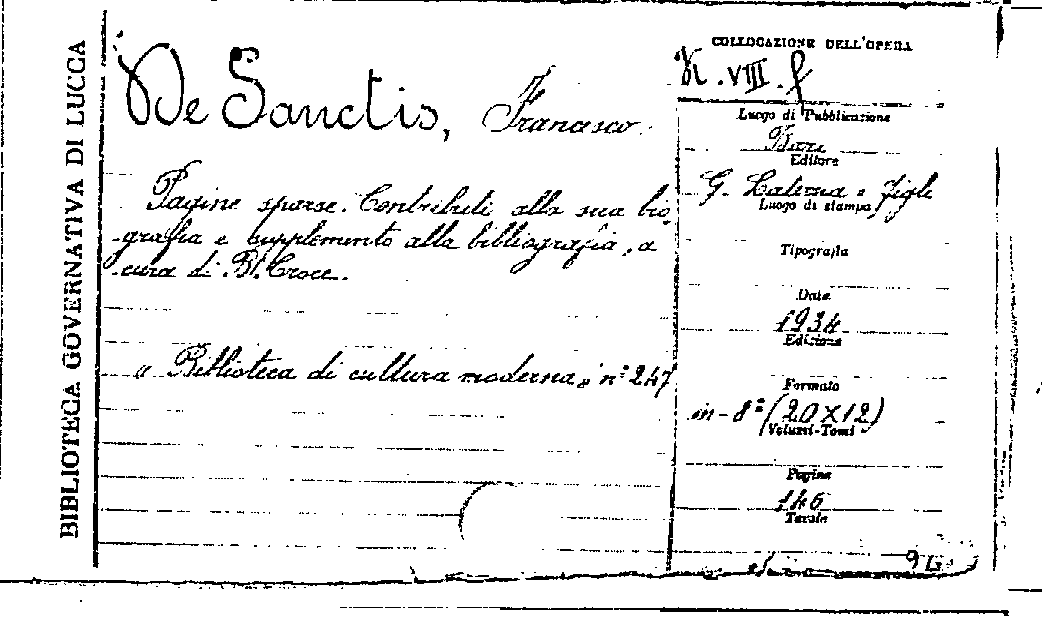 BIBLIOTECA GOVERNATIVA DI LUCCA
De Sanctis, Francesco.
Pagine sparse. Contributi alla sua bio
grafia e supplemento alla bibliografia, a
cura di B. Croce.
"Biblioteca di cultura moderna" n° 247
COLLOCAZIONE DELL'OPERA
VIII. f
Luogo di Pubblicazione
Bari
Editore
G. Laterza e figli
Luogo di stampa
Tipografia
Date
1934
Edizione
Formato
in-8° (20X12)
Volumi-Tomi
Pagine
146
Tavole